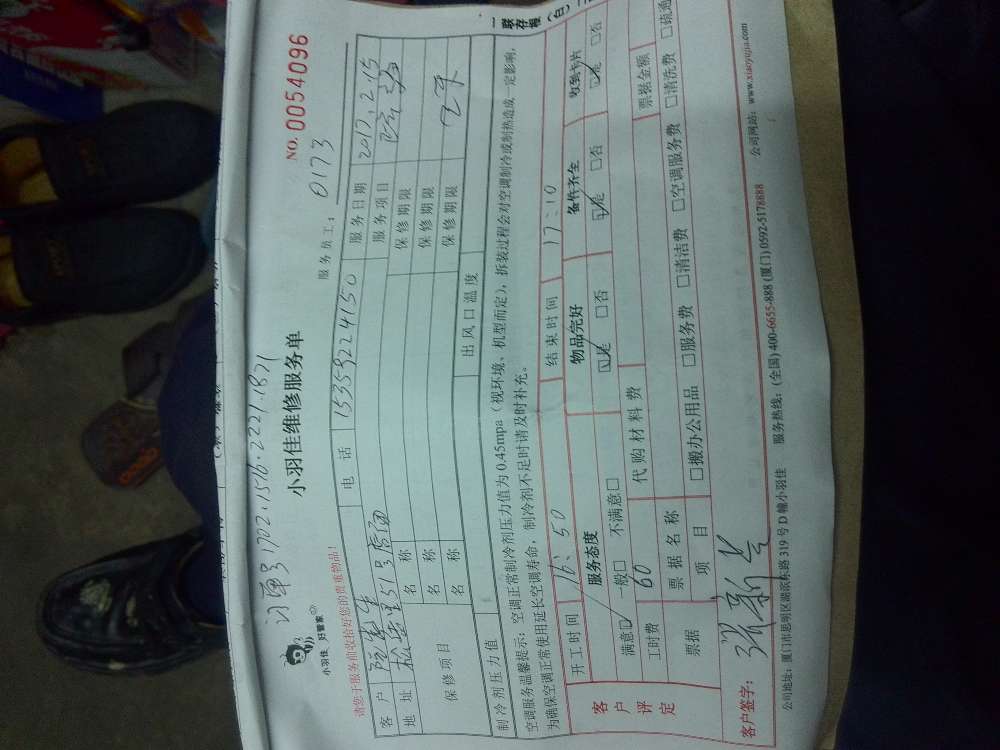 订单号1702.1516.2221.4871
小羽佳
好管家
小羽佳维修服务单
NO. 0054096
请您于服务前收拾好您的贵重物品!
服务员工: 0173
客户 电话 15359224150 服务日期 2017.2.15
地址 51号店面 服务项目
保修项目
名称 保修期限
名称 保修期限
名称 保修期限
制冷剂压力值 出风口温度
空调服务温馨提示: 空调正常制冷剂压力值为 0.45mpa (视环境、机型而定), 拆装过程会对空调制冷或制热造成一定影响,
为确保空调正常使用延长空调寿命, 制冷剂不足时请及时补充。
开工时间 16:50 结束时间 17:10
客户评定
服务态度 物品完好 备件齐全 收到卡片
满意☑ 一般□ 不满意□ ☑是 □否 ☑是 □否 ☑是 □否
工时费 60 代购材料费
票据 票据名称 票据金额
项目 □搬办公用品 □服务费 □清洁费 □空调服务费 □清洗费 □疏通
客户签字:
公司地址: 厦门市思明区湖滨东路 319 号 D 幢小羽佳 服务热线: (全国) 400-6655-888 (厦门) 0592-5178888 公司网站: www.xiaoyujia.com
一联存根(白)